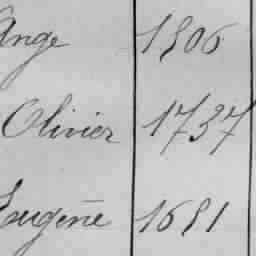 Ange 1806
Olivier 1737
Eugène 1681